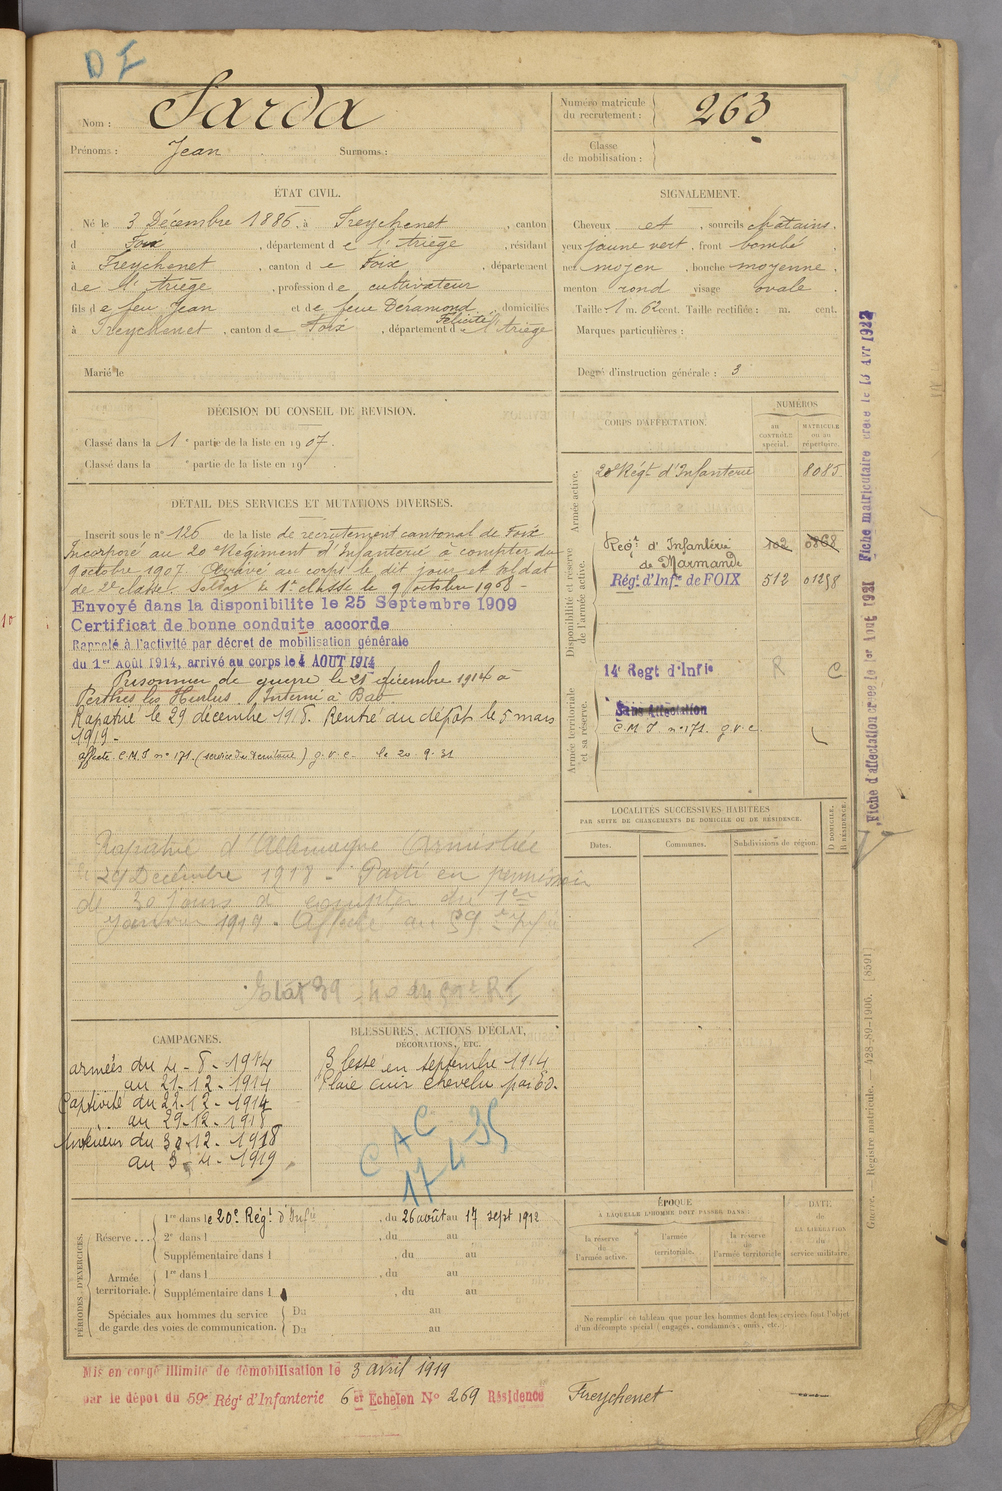 D I
Nom : Sarda
Prénoms : Jean Surnoms :
Numéro matricule du recrutement : 263
Classe de mobilisation :
ÉTAT CIVIL.
Né le 3 Décembre 1886, à Freychenet, canton
d Foix, département de l'Ariège, résidant
à Freychenet, canton de Foix, département
de l'Ariège, profession de cultivateur
fils de feu Jean et de feue Déramond Félicité, domiciliés
à Freychenet, canton de Foix, département de l'Ariège
Marié le
SIGNALEMENT.
Cheveux et, sourcils châtains.
yeux jaune vert, front bombé
nez moyen, bouche moyenne,
menton rond visage ovale.
Taille 1 m. 62 cent. Taille rectifiée : m. cent.
Marques particulières :
Degré d'instruction générale : 3
DÉCISION DU CONSEIL DE REVISION.
Classé dans la 1e partie de la liste en 1907.
Classé dans la e partie de la liste en 19
DÉTAIL DES SERVICES ET MUTATIONS DIVERSES.
Inscrit sous le n° 126 de la liste de recrutement cantonal de Foix
Incorporé au 20e Régiment d'Infanterie à compter du
9 octobre 1907. Arrivé au corps le dit jour et soldat
de 2e classe. Soldat de 1e classe le 9 octobre 1908 -
Envoyé dans la disponibilite le 25 Septembre 1909
Certificat de bonne conduite accorde
Rappelé à l'activité par décret de mobilisation générale
du 1er Août 1914, arrivé au corps le 4 AOUT 1914
Prisonnier de guerre le 21 décembre 1914 à
Perthes les Hurlus. Interné à
Rapatrié le 29 décembre 1918. Rentré au dépôt le 5 mars
1919 -
affecté C.M.I n° 171. g.v.c. le 20-9-31
Rapatrié d'Allemagne Armistice
le 29 Décembre 1918 - Parti en permission
de 30 jours à compter du 1er
Janvier 1919. Affecté au 59e
CORPS D'AFFECTATION.
NUMÉROS
au CONTRÔLE spécial.
MATRICULE ou au répertoire.
Armée active.
20e Régt d'Infanterie 8085
Disponibilité et réserve de l'armée active.
Régt d'Infanterie de Marmande 102 0868
Régt. d'Infie de FOIX 512 01258
Armée territoriale et sa réserve.
14e Regt d'Infie R C
Sans Affectation
C.M.I. n° 171. g.v.c.
Fiche d'affectation créée le 1er Aout 1921 Fiche matriculaire créée le 13 Avr 1922
LOCALITÉS SUCCESSIVES HABITÉES
PAR SUITE DE CHANGEMENTS DE DOMICILE OU DE RÉSIDENCE.
Dates. Communes. Subdivisions de région. D DOMICILE. R RÉSIDENCE.
CAMPAGNES.
armées du 4-8-1914
au 21-12-1914
Captivité du 22-12-1914
au 29-12-1918
Intérieur du 30-12-1918
au 3-4-1919
BLESSURES, ACTIONS D'ÉCLAT,
DÉCORATIONS, ETC.
Blessé en septembre 1914
Plaie cuir chevelu par E.O.
C A C
17-4-35
PÉRIODES D'EXERCICES.
Réserve....
1re dans le 20e. Régt d'Infie, du 26 août au 17 sept 1912
2e dans l , du au
Supplémentaire dans l , du au
Armée territoriale.
1re dans l , du au
Supplémentaire dans l , du au
Spéciales aux hommes du service de garde des voies de communication.
Du au
Du au
ÉPOQUE
À LAQUELLE L'HOMME DOIT PASSER DANS
la réserve de l'armée active. l'armée territoriale. la réserve de l'armée territoriale
DATE de LA LIBÉRATION du service militaire.
Ne remplir ce tableau que pour les hommes dont les services font l'objet
d'un décompte spécial (engagés, condamnés, omis, etc.).
Guerre. — Registre matricule. — 428-89-1906. [8591]
Mis en congé illimité de démobilisation le 3 avril 1919
par le dépot du 59e Régt d'Infanterie 6 er Echelon N° 269 Résidence Freychenet